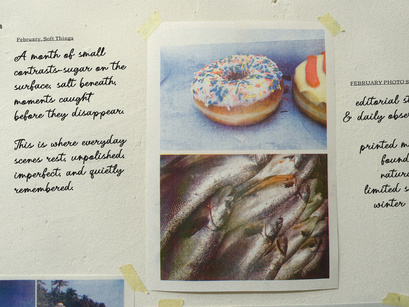 February, Soft Things
A month of small
contrasts-sugar on the
surface, salt beneath,
moments caught
before they disappear.
This is where everyday
scenes rest, unpolished,
imperfect, and quietly
remembered.
FEBRUARY PHOTO
editorial
& daily
printed
found
limited
winter